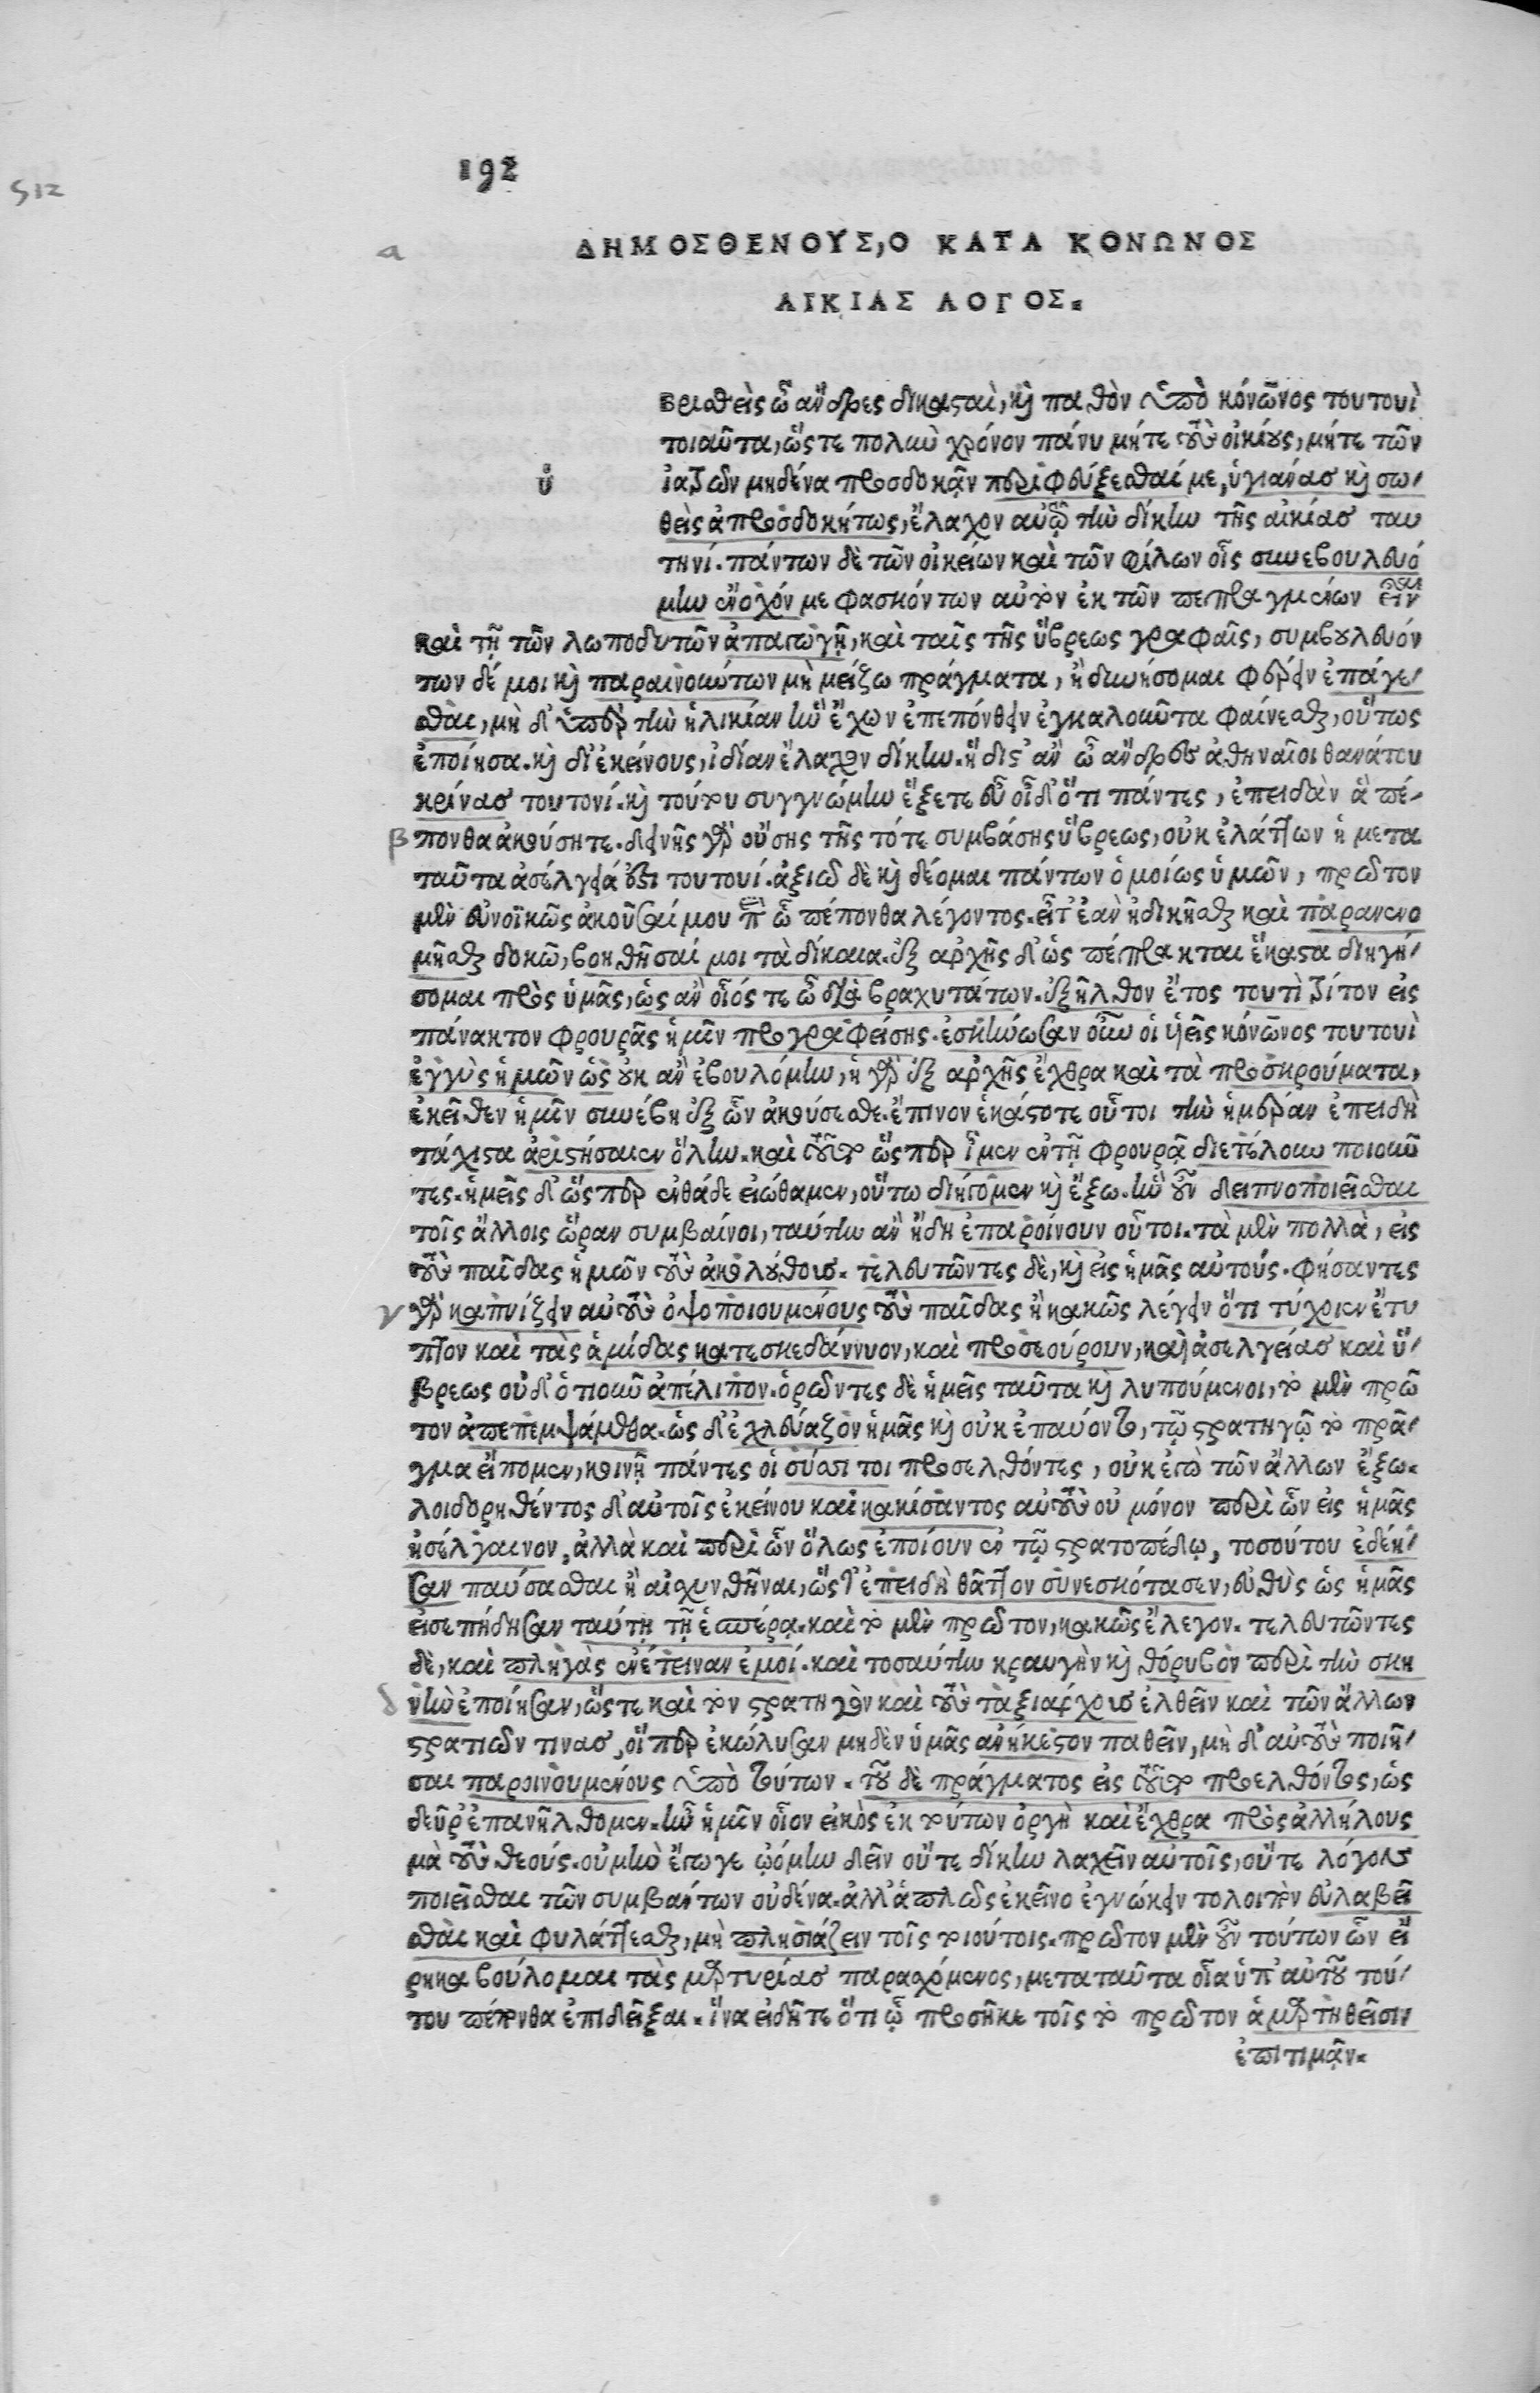 192
512
α
ΔΗΜΟΣΘΕΝΟΥΣ, Ο ΚΑΤΑ ΚΟΝΩΝΟΣ
ΑΙΚΙΑΣ ΛΟΓΟΣ.
βρισθεὶς ὦ ἄνδρες δικασταὶ, καὶ παθὼν ὑπὸ κόνωνος τουτουὶ
τοιαῦτα, ὥστε πολὺν χρόνον πάνυ μήτε τοὺς οἰκείους, μήτε τῶν
ὑ ἰατρῶν μηδένα προσδοκᾶν περιφεύξεσθαί με, ὑγιάνας καὶ σω-
θεὶς ἀπροσδοκήτως, ἔλαχον αὐτῷ τὴν δίκην τῆς αἰκίας ταυ
τηνί. πάντων δὲ τῶν οἰκείων καὶ τῶν φίλων οἷς συνεβουλευό
μην ἔνοχόν με φασκόντων αὐτὸν ἐκ τῶν πεπραγμένων εἶναι
καὶ τῇ τῶν λωποδυτῶν ἀπαγωγῇ, καὶ ταῖς τῆς ὕβρεως γραφαῖς, συμβουλευόν
των δέ μοι καὶ παραινούντων μὴ μείζω πράγματα, ἢ δυνήσομαι φέρειν ἐπάγε-
σθαι, μὴ δ' ὑπὲρ τὴν ἡλικίαν ἣν ἔχων ἐπεπόνθειν ἐγκαλοῦντα φαίνεσθαι, οὕτως
ἐποίησα. καὶ δι' ἐκείνους, ἰδίαν ἔλαχον δίκην. ἥδιστ' ἂν ὦ ἄνδρες ἀθηναῖοι θανάτου
κρίνας τουτονί. καὶ τούτου συγγνώμην ἕξετε εὖ οἶδ' ὅτι πάντες, ἐπειδὰν ἃ πέ-
β πονθα ἀκούσητε. δεινῆς γὰρ οὔσης τῆς τότε συμβάσης ὕβρεως, οὐκ ἐλάττων ἡ μετα
ταῦτα ἀσέλγειά ἐστι τουτουί. ἀξιῶ δὲ καὶ δέομαι πάντων ὁμοίως ὑμῶν, πρῶτον
μὲν εὐνοϊκῶς ἀκοῦσαί μου περὶ ὧ πέπονθα λέγοντος. εἶτ' ἐὰν ἠδικῆσθαι καὶ παρανενο
μῆσθαι δοκῶ, βοηθῆσαί μοι τὰ δίκαια. ἐξ ἀρχῆς δ' ὡς πέπρακται ἕκαστα διηγή-
σομαι πρὸς ὑμᾶς, ὡς ἂν οἷός τε ὦ διὰ βραχυτάτων. ἐξῆλθον ἔτος τουτὶ τρίτον εἰς
πάνακτον φρουρᾶς ἡμῖν προγραφείσης. ἐσκήνωσαν οὖν οἱ υἱεῖς κόνωνος τουτουὶ
ἐγγὺς ἡμῶν ὡς οὐκ ἂν ἐβουλόμην, ἡ γὰρ ἐξ ἀρχῆς ἔχθρα καὶ τὰ προσκρούματα,
ἐκεῖθεν ἡμῖν συνέβη ἐξ ὧν ἀκούσεσθε. ἔπινον ἑκάστοτε οὗτοι τὴν ἡμέραν ἐπειδὴ
τάχιστα ἀριστήσαιεν ὅλην. καὶ τοῦτο ὥσπερ ἦμεν ἐν τῇ φρουρᾷ διετέλουν ποιοῦν
τες. ἡμεῖς δ' ὥσπερ ἐνθάδε εἰώθαμεν, οὕτω διήγομεν καὶ ἔξω. ἣν οὖν δειπνοποιεῖσθαι
τοῖς ἄλλοις ὥραν συμβαίνοι, ταύτην ἂν ἤδη ἐπαροίνουν οὗτοι. τὰ μὲν πολλὰ, εἰς
τοὺς παῖδας ἡμῶν τοὺς ἀκολούθους. τελευτῶντες δὲ, καὶ εἰς ἡμᾶς αὐτούς. φήσαντες
γ γὰρ καπνίζειν αὐτοὺς ὀψοποιουμένους τοὺς παῖδας ἢ κακῶς λέγειν ὅτι τύχοιεν ἔτυ
πτον καὶ τὰς ἁμίδας κατεσκεδάννυον, καὶ προσεούρουν, καὶ ἀσελγείας καὶ ὕ-
βρεως οὐδ' ὁτιοῦν ἀπέλιπον. ὁρῶντες δὲ ἡμεῖς ταῦτα καὶ λυπούμενοι, τὸ μὲν πρῶ
τον ἀπεπεμψάμεθα. ὡς δ' ἐχλεύαζον ἡμᾶς καὶ οὐκ ἐπαύοντο, τῷ στρατηγῷ τὸ πρᾶ-
γμα εἴπομεν, κοινῇ πάντες οἱ σύσσιτοι προσελθόντες, οὐκ ἐγὼ τῶν ἄλλων ἔξω.
λοιδορηθέντος δ' αὐτοῖς ἐκείνου καὶ κακίσαντος αὐτοὺς οὐ μόνον περὶ ὧν εἰς ἡμᾶς
ἠσέλγαινον, ἀλλὰ καὶ περὶ ὧν ὅλως ἐποίουν ἐν τῷ στρατοπέδῳ, τοσούτου ἐδέη-
σαν παύσασθαι ἢ αἰσχυνθῆναι, ὥστ' ἐπειδὴ θᾶττον συνεσκότασεν, εὐθὺς ὡς ἡμᾶς
εἰσεπήδησαν ταύτῃ τῇ ἑσπέρᾳ. καὶ τὸ μὲν πρῶτον, κακῶς ἔλεγον. τελευτῶντες
δὲ, καὶ πληγὰς ἐνέτειναν ἐμοί. καὶ τοσαύτην κραυγὴν καὶ θόρυβον περὶ τὴν σκη
δ νὴν ἐποίησαν, ὥστε καὶ τὸν στρατηγὸν καὶ τοὺς ταξιάρχους ἐλθεῖν καὶ τῶν ἄλλων
στρατιωῶν τινας, οἵπερ ἐκώλυσαν μηδὲν ὑμᾶς ἀνήκεστον παθεῖν, μὴ δ' αὐτοὺς ποιῆ-
σαι παροινουμένους ὑπὸ τούτων. τοῦ δὲ πράγματος εἰς τοῦτο προελθόντος, ὡς
δεῦρ' ἐπανήλθομεν. ἦν ἡμῖν οἷον εἰκὸς ἐκ τούτων ὀργὴ καὶ ἔχθρα πρὸς ἀλλήλους
μὰ τοὺς θεούς. οὐ μὴν ἔγωγε ᾠόμην δεῖν οὔτε δίκην λαχεῖν αὐτοῖς, οὔτε λόγον
ποιεῖσθαι τῶν συμβάντων οὐδένα. ἀλλ' ἁπλῶς ἐκεῖνο ἐγνώκειν τολοιπὸν εὐλαβεῖ
σθαι καὶ φυλάττεσθαι, μὴ πλησιάζειν τοῖς τοιούτοις. πρῶτον μὲν οὖν τούτων ὧν εἴ
ρηκα βούλομαι τὰς μαρτυρίας παρασχόμενος, μεταταῦτα οἷα ὑπ' αὐτοῦ τού-
του πέπονθα ἐπιδεῖξαι. ἵνα εἰδῆτε ὅτι ᾧ προσῆκε τοῖς τὸ πρῶτον ἁμαρτηθεῖσιν
ἐπιτιμᾶν.